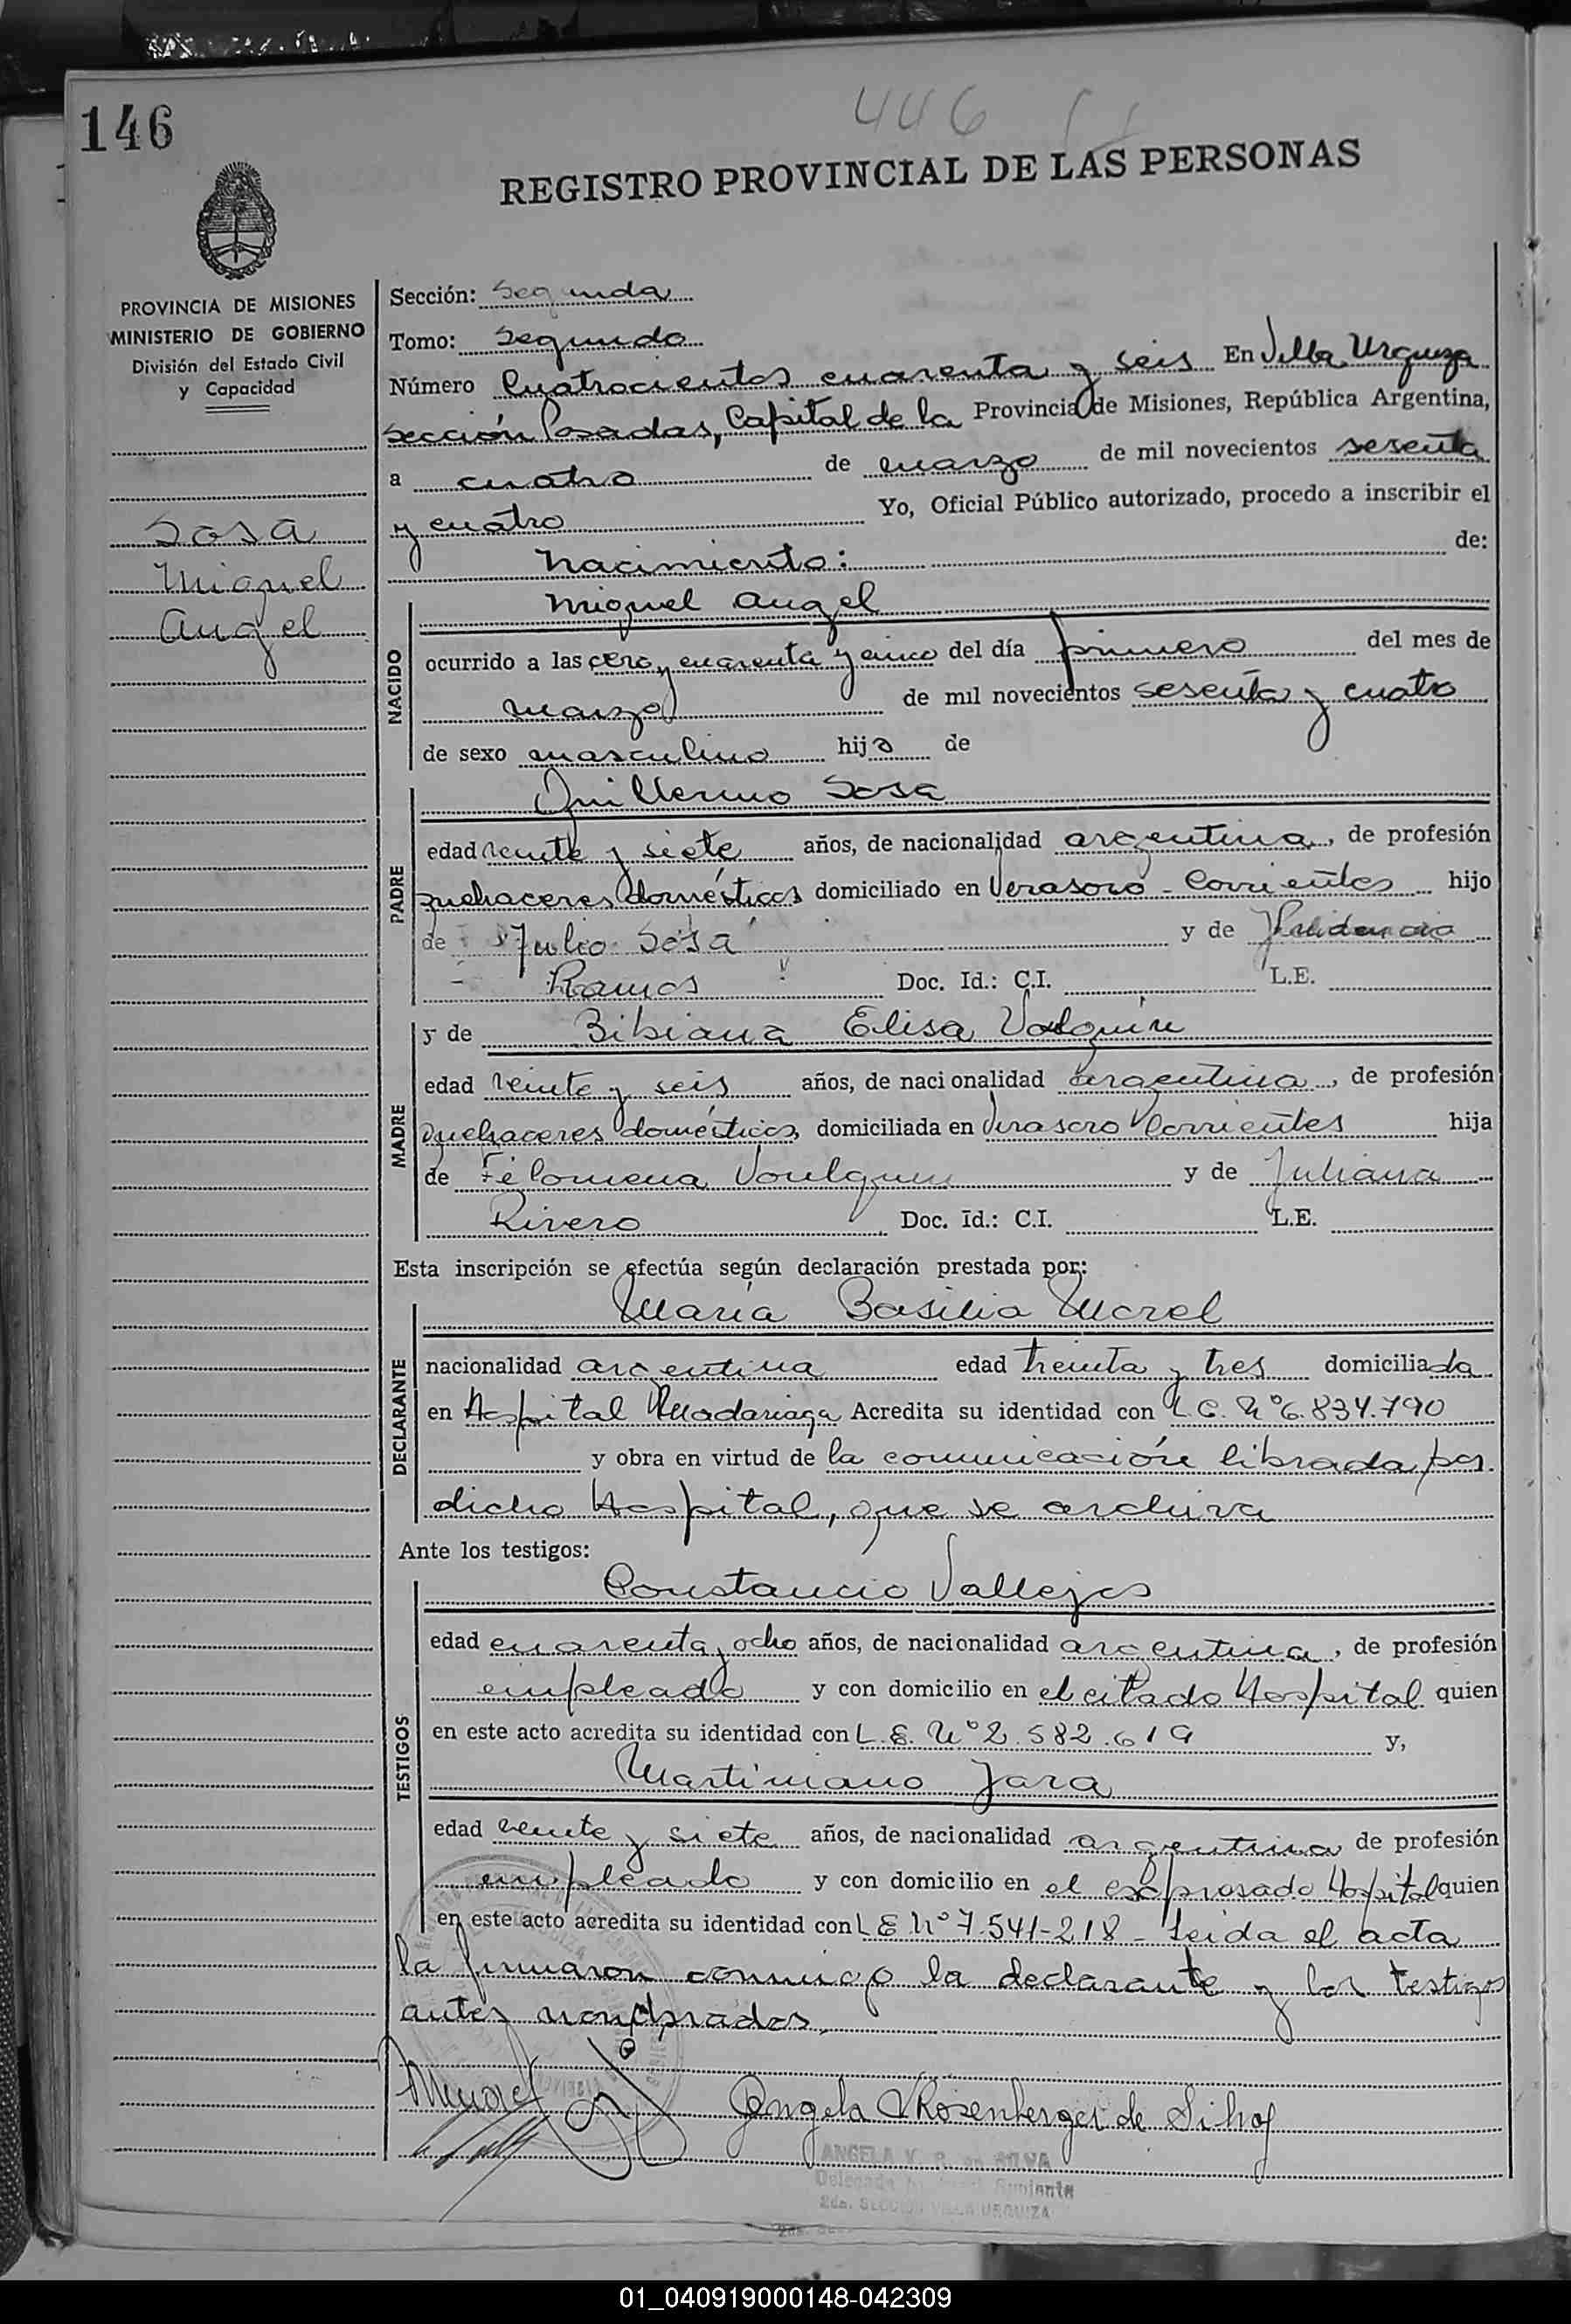 146
446
REGISTRO PROVINCIAL DE LAS PERSONAS
PROVINCIA DE MISIONES
MINISTERIO DE GOBIERNO
División del Estado Civil
y Capacidad
Sosa
Miguel
Angel
Sección: Segunda
Tomo: Segundo
Número Cuatrocientos cuarenta y seis En Villa Urquiza
Sección Posadas, Capital de la Provincia de Misiones, República Argentina,
a cuatro de marzo de mil novecientos sesenta
y cuatro Yo, Oficial Público autorizado, procedo a inscribir el
Nacimiento: de:
NACIDO
Miguel Angel
ocurrido a las cero y cuarenta y cinco del día primero del mes de
marzo de mil novecientos sesenta y cuatro
de sexo masculino hijo de
PADRE
Guillermo Sosa
edad veinte y siete años, de nacionalidad argentina, de profesión
quehaceres domésticos domiciliado en Verasoro - Corrientes hijo
de Julio Sosa y de
Ramos Doc. Id.: C.I. L.E.
MADRE
y de Bibiana Elisa
edad veinte y seis años, de nacionalidad argentina, de profesión
quehaceres domésticos, domiciliada en Virasoro Corrientes hija
de Filomena y de Juliana
Rivero Doc. Id.: C.I. L.E.
Esta inscripción se efectúa según declaración prestada por:
DECLARANTE
María Basilia Morel
nacionalidad argentina edad treinta y tres domiciliada
en Hospital Madariaga Acredita su identidad con L C. Nº 6.834.790
y obra en virtud de la comunicación librada por
dicho Hospital, que se archiva
Ante los testigos:
TESTIGOS
Constancio Vallejos
edad cuarenta y ocho años, de nacionalidad argentina, de profesión
empleado y con domicilio en el citado Hospital quien
en este acto acredita su identidad con L.E. Nº 2.582.619 y,
Martimano Jara
edad veinte y siete años, de nacionalidad argentina de profesión
empleado y con domicilio en el expresado Hospital quien
en este acto acredita su identidad con L E Nº 7.541-218 - Leida el acta
la firmaron conmigo la declarante y los testigos
antes nombrados.
Angela Rosenberger de Silva
ANGELA V. R. de SILVA
Suplente
2da. SECCION VILLA URQUIZA
01_040919000148-042309